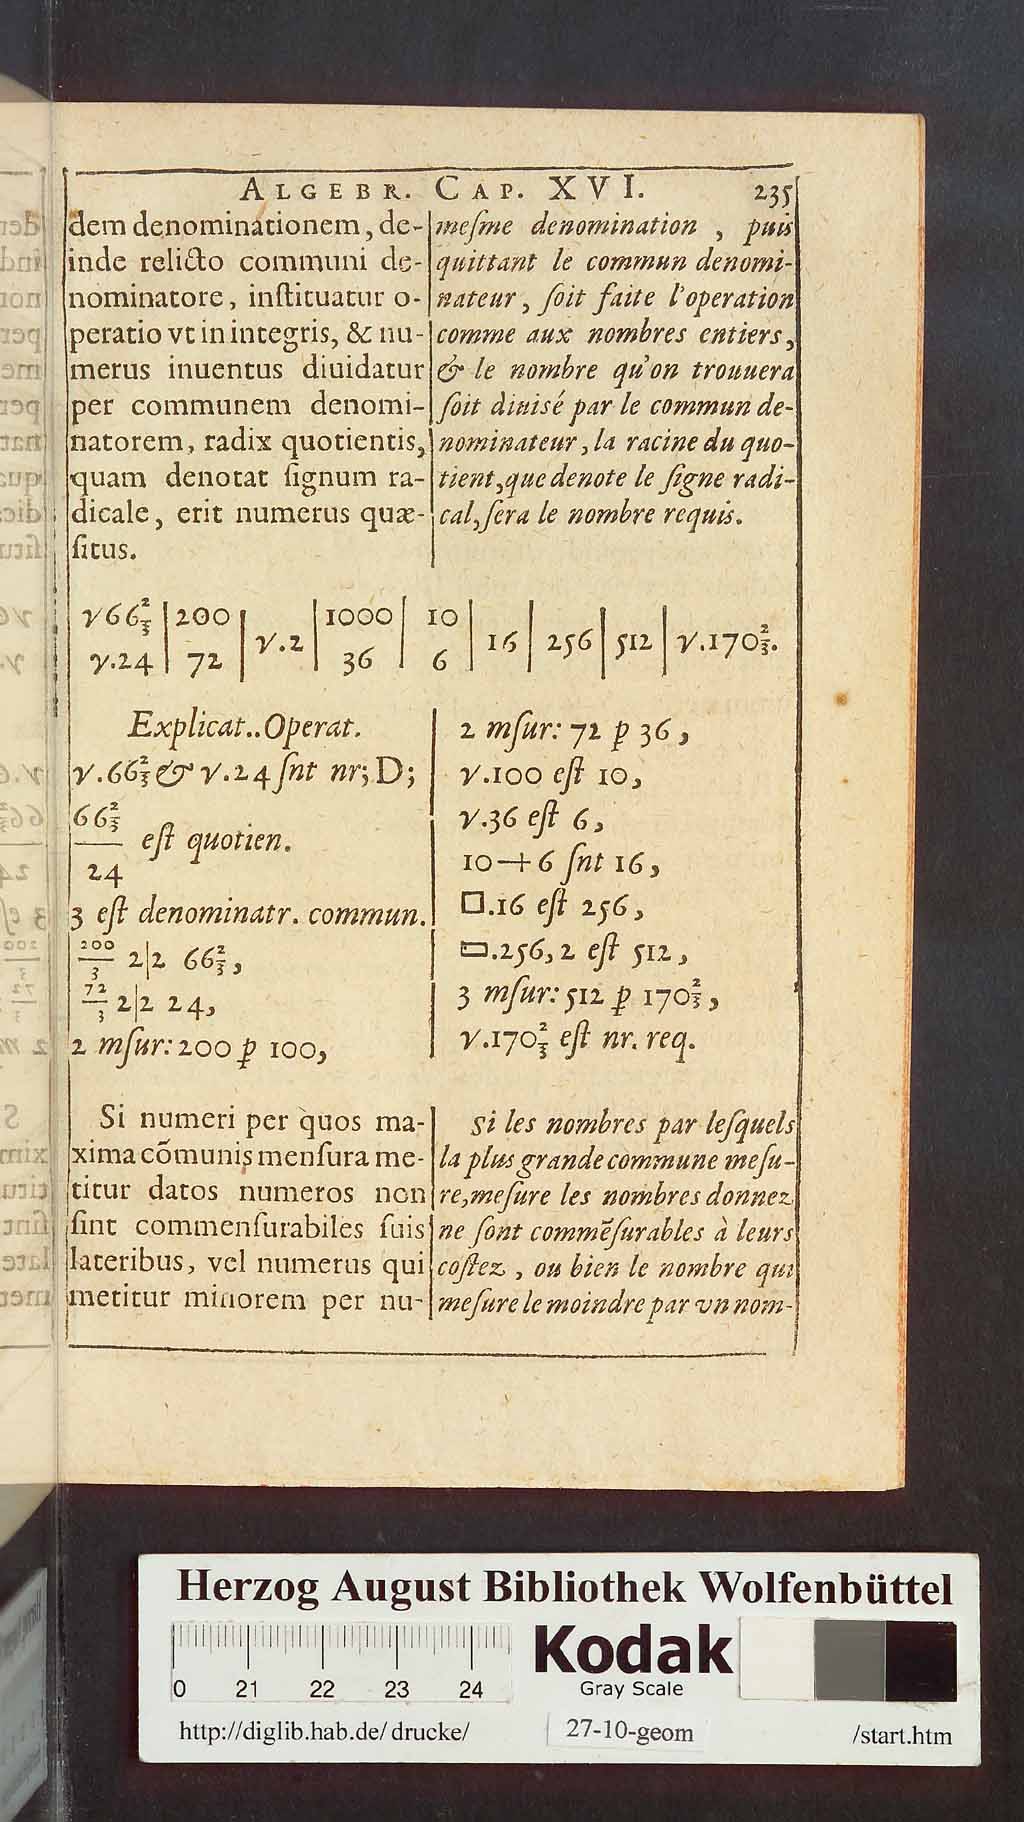 ALGEBR. CAP. XVI. 235
dem denominationem, de-
inde relicto communi de-
nominatore, inſtituatur o-
peratio vt in integris, & nu-
merus inuentus diuidatur
per communem denomi-
natorem, radix quotientis,
quam denotat ſignum ra-
dicale, erit numerus quæ-
ſitus.
meſme denomination, puis
quittant le commun denomi-
nateur, ſoit faite l'operation
comme aux nombres entiers,
& le nombre qu'on trouuera
ſoit diuisé par le commun de-
nominateur, la racine du quo-
tient, que denote le ſigne radi-
cal, ſera le nombre requis.
√66⅔ | 200 | √.2 | 1000 | 10 | 16 | 256 | 512 | √.170⅔.
√.24 | 72 | 36 | 6
Explicat..Operat.
√.66⅔ & √.24 ſnt nr; D;
66⅔
— eſt quotien.
24
3 eſt denominatr. commun.
200/3 2|2 66⅔,
72/3 2|2 24,
2 mſur: 200 ꝑ 100,
2 mſur: 72 ꝑ 36,
√.100 eſt 10,
√.36 eſt 6,
10+6 ſnt 16,
□.16 eſt 256,
▭.256,2 eſt 512,
3 mſur: 512 ꝑ 170⅔,
√.170⅔ eſt nr. req.
Si numeri per quos ma-
xima cõmunis menſura me-
titur datos numeros non
ſint commenſurabiles ſuis
lateribus, vel numerus qui
metitur minorem per nu-
Si les nombres par leſquels
la plus grande commune meſu-
re, meſure les nombres donnez
ne ſont commẽſurables à leurs
coſtez, ou bien le nombre qui
meſure le moindre par vn nom-
Herzog August Bibliothek Wolfenbüttel
0 21 22 23 24
Kodak
Gray Scale
http://diglib.hab.de/drucke/ 27-10-geom /start.htm